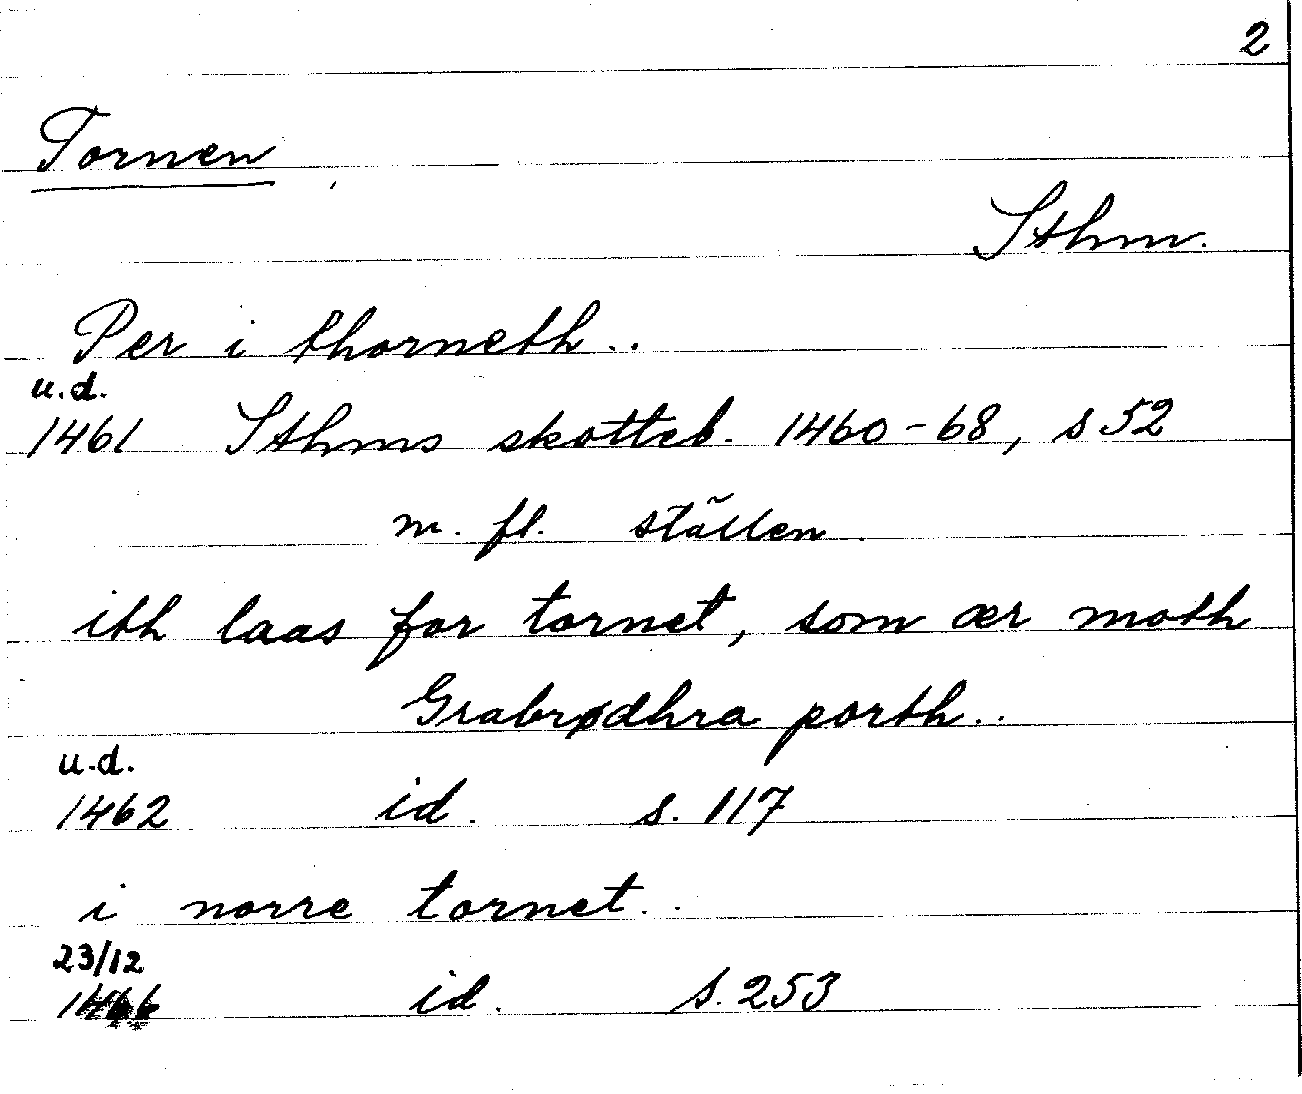 2
Tornen
Sthm.
Per i thorneth..
u.d.
1461 Sthms skotteb. 1460-68, s 52
m. fl. ställen.
ith laas for tornet, som ær moth
Grabrødhra porth..
u.d.
1462 id. s. 117
i norre tornet..
23/12
1466 id. s. 253